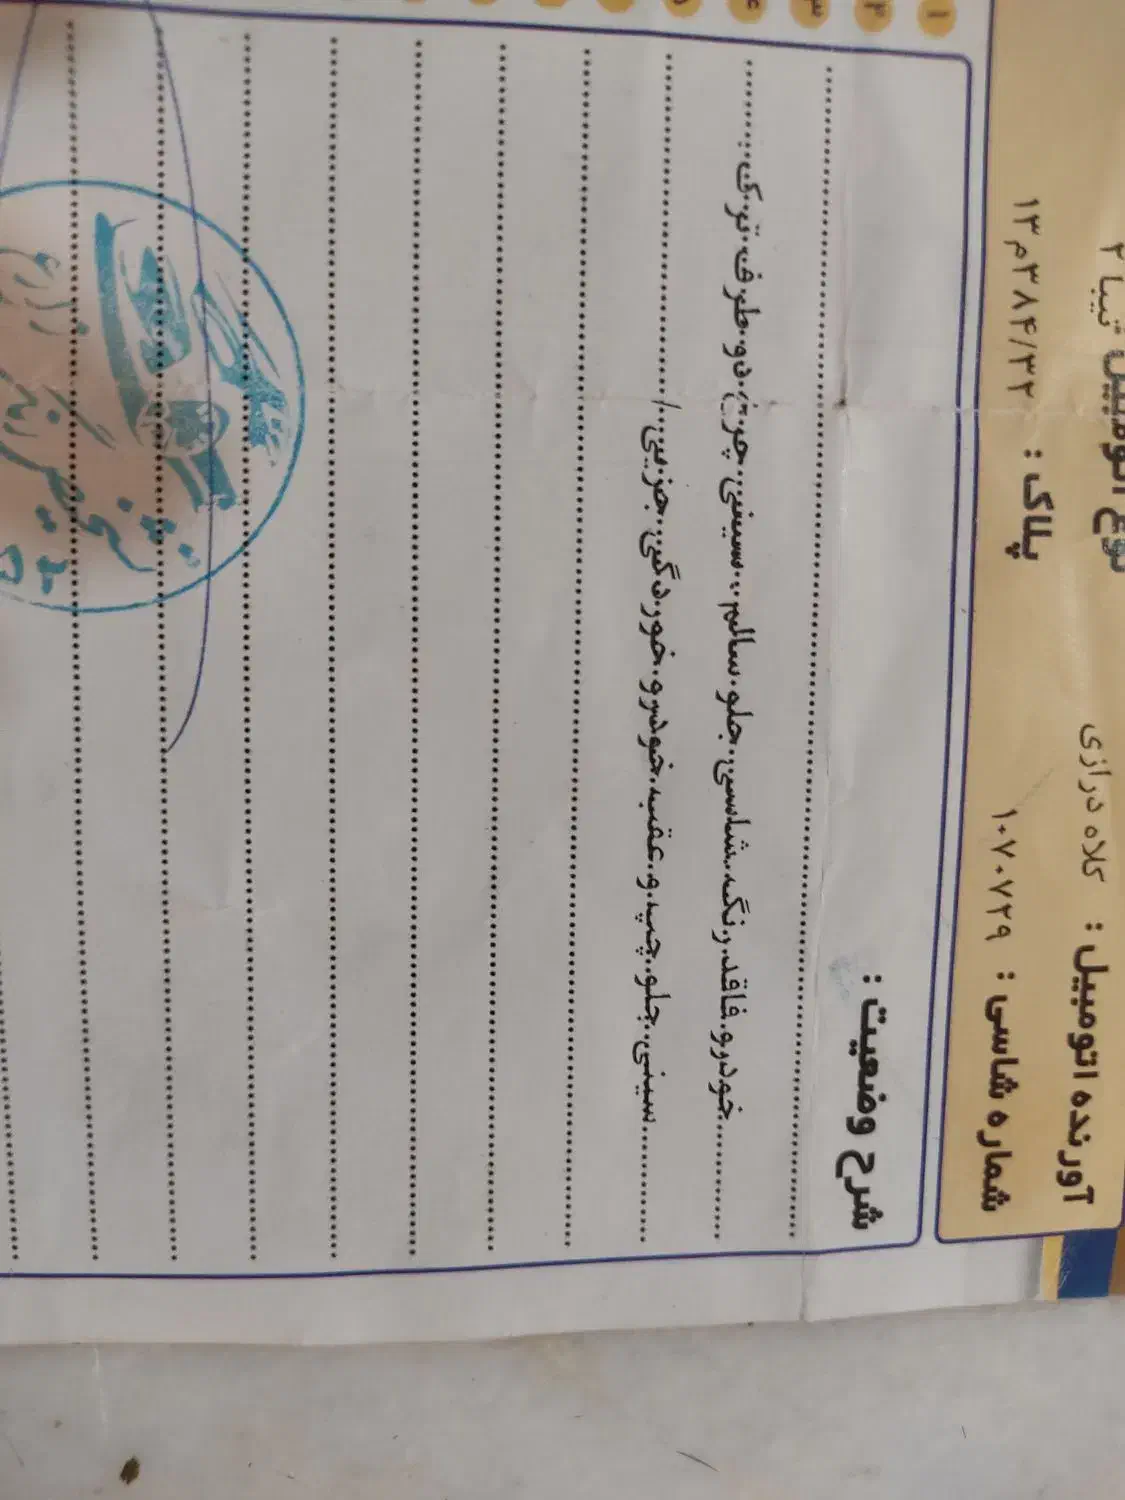 نوع اتومبیل تیبا ۲
آورنده اتومبیل : کلاه درازی
پلاک : ۳۲/۳۸۴م۱۳
شماره شاسی : ۱۰۷۰۷۲۹
۱ ۲ ۳ ۴ ۵
شرح وضعیت :
خودرو فاقد رنگ شاسی جلو سالم سینی چرخ دو طرف ترک
سینی جلو چپ و عقب خودرو خوردگی جزیی